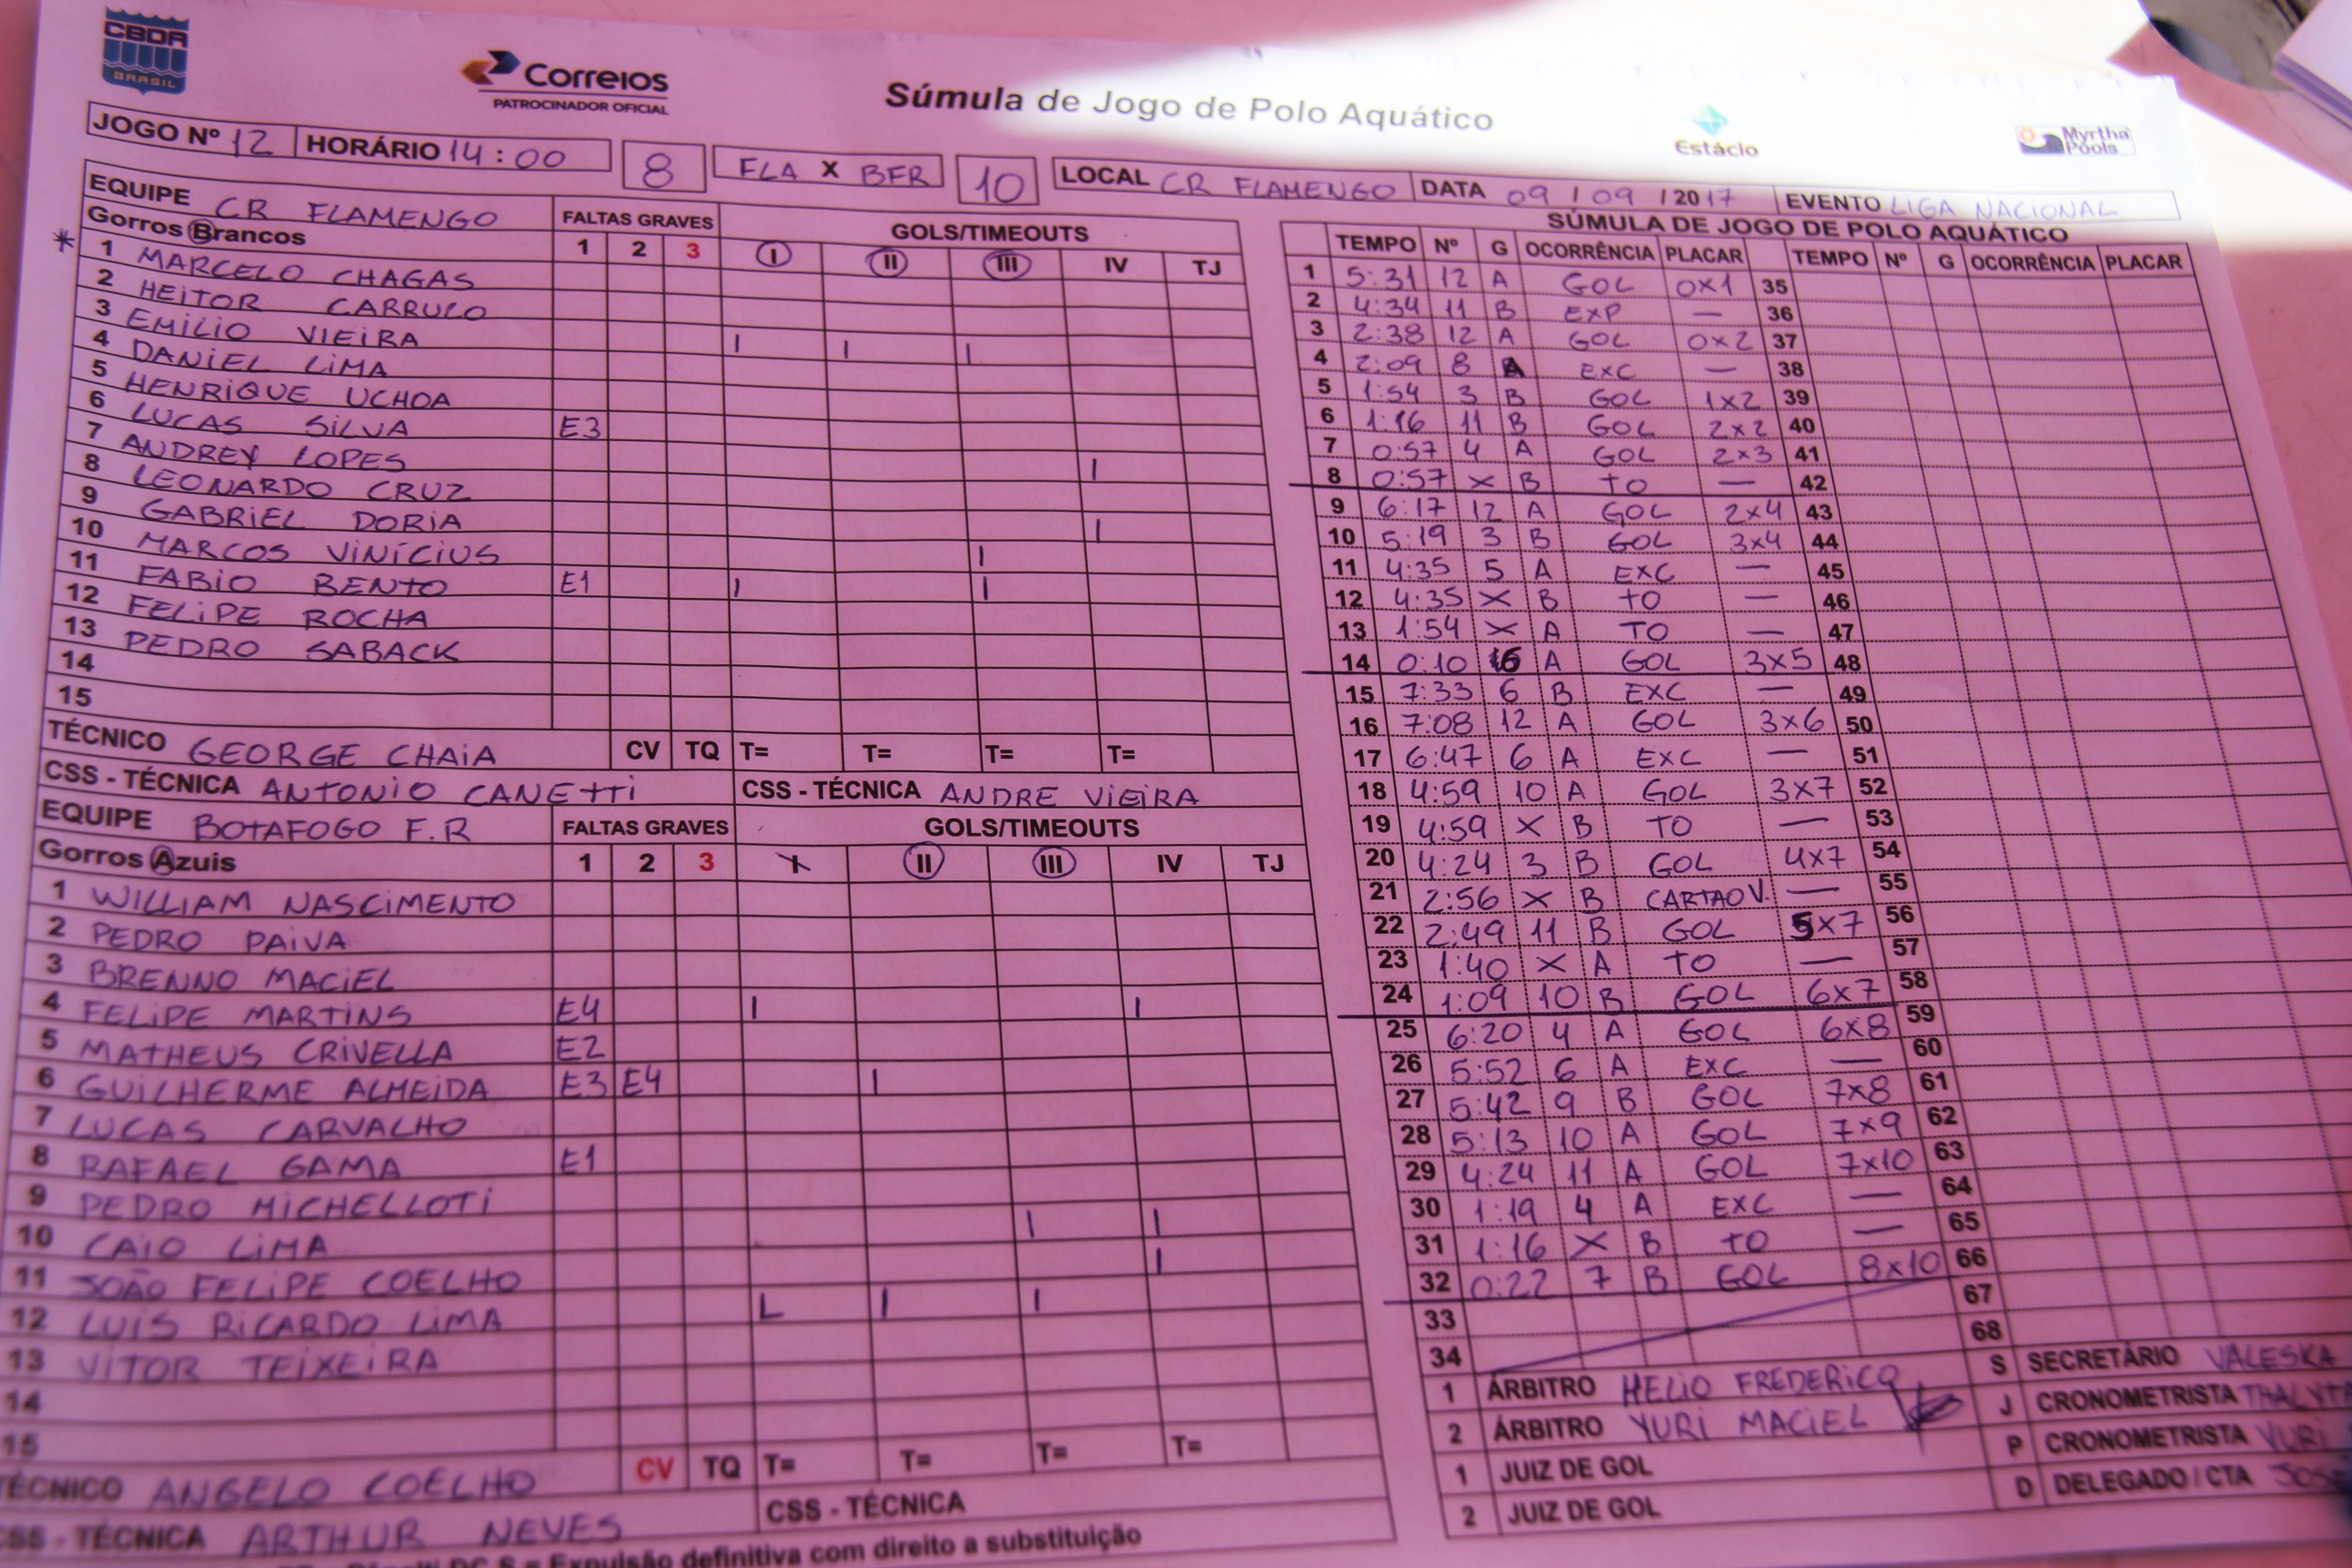 CBDA
BRASIL
Correios
PATROCINADOR OFICIAL
Súmula de Jogo de Polo Aquático
Estácio
Myrtha Pools
JOGO Nº 12 HORÁRIO 14:00 8 FLA X BFR 10 LOCAL CR FLAMENGO DATA 09 / 09 / 2017 EVENTO LIGA NACIONAL
EQUIPE CR FLAMENGO FALTAS GRAVES GOLS/TIMEOUTS
Gorros Brancos 1 2 3 I II III IV TJ
* 1 MARCELO CHAGAS
2 HEITOR CARRULO
3 EMILIO VIEIRA I I I
4 DANIEL LIMA
5 HENRIQUE UCHOA
6 LUCAS SILVA E3
7 ANDREY LOPES I
8 LEONARDO CRUZ
9 GABRIEL DORIA I
10 MARCOS VINÍCIUS I
11 FABIO BENTO E1 I I
12 FELIPE ROCHA
13 PEDRO SABACK
14
15
TÉCNICO GEORGE CHAIA CV TQ T= T= T= T=
CSS - TÉCNICA ANTONIO CANETTI CSS - TÉCNICA ANDRE VIEIRA
EQUIPE BOTAFOGO F.R FALTAS GRAVES GOLS/TIMEOUTS
Gorros Azuis 1 2 3 I II III IV TJ
1 WILLIAM NASCIMENTO
2 PEDRO PAIVA
3 BRENNO MACIEL
4 FELIPE MARTINS E4 I I
5 MATHEUS CRIVELLA E2
6 GUILHERME ALMEIDA E3 E4 I
7 LUCAS CARVALHO
8 RAFAEL GAMA E1
9 PEDRO MICHELLOTI
10 CAIO LIMA I I
11 JOÃO FELIPE COELHO I
12 LUIS RICARDO LIMA L I I
13 VITOR TEIXEIRA
14
15
TÉCNICO ANGELO COELHO CV TQ T= T= T= T=
CSS - TÉCNICA ARTHUR NEVES CSS - TÉCNICA
S = Expulsão definitiva com direito a substituição
SÚMULA DE JOGO DE POLO AQUÁTICO
TEMPO Nº G OCORRÊNCIA PLACAR TEMPO Nº G OCORRÊNCIA PLACAR
1 5:31 12 A GOL 0x1 35
2 4:34 11 B EXP — 36
3 2:38 12 A GOL 0x2 37
4 2:09 8 A EXC — 38
5 1:54 3 B GOL 1x2 39
6 1:16 11 B GOL 2x2 40
7 0:57 4 A GOL 2x3 41
8 0:57 X B TO — 42
9 6:17 12 A GOL 2x4 43
10 5:19 3 B GOL 3x4 44
11 4:35 5 A EXC — 45
12 4:35 X B TO — 46
13 1:54 X A TO — 47
14 0:10 6 A GOL 3x5 48
15 7:33 6 B EXC — 49
16 7:08 12 A GOL 3x6 50
17 6:47 6 A EXC — 51
18 4:59 10 A GOL 3x7 52
19 4:59 X B TO — 53
20 4:24 3 B GOL 4x7 54
21 2:56 X B CARTAO V. — 55
22 2:49 11 B GOL 5x7 56
23 1:40 X A TO — 57
24 1:09 10 B GOL 6x7 58
25 6:20 4 A GOL 6x8 59
26 5:52 6 A EXC — 60
27 5:42 9 B GOL 7x8 61
28 5:13 10 A GOL 7x9 62
29 4:24 11 A GOL 7x10 63
30 1:19 4 A EXC — 64
31 1:16 X B TO — 65
32 0:22 7 B GOL 8x10 66
33 67
34 68
1 ÁRBITRO HELIO FREDERICO S SECRETÁRIO VALESKA
2 ÁRBITRO YURI MACIEL J CRONOMETRISTA
1 JUIZ DE GOL P CRONOMETRISTA YURI
2 JUIZ DE GOL D DELEGADO / CTA